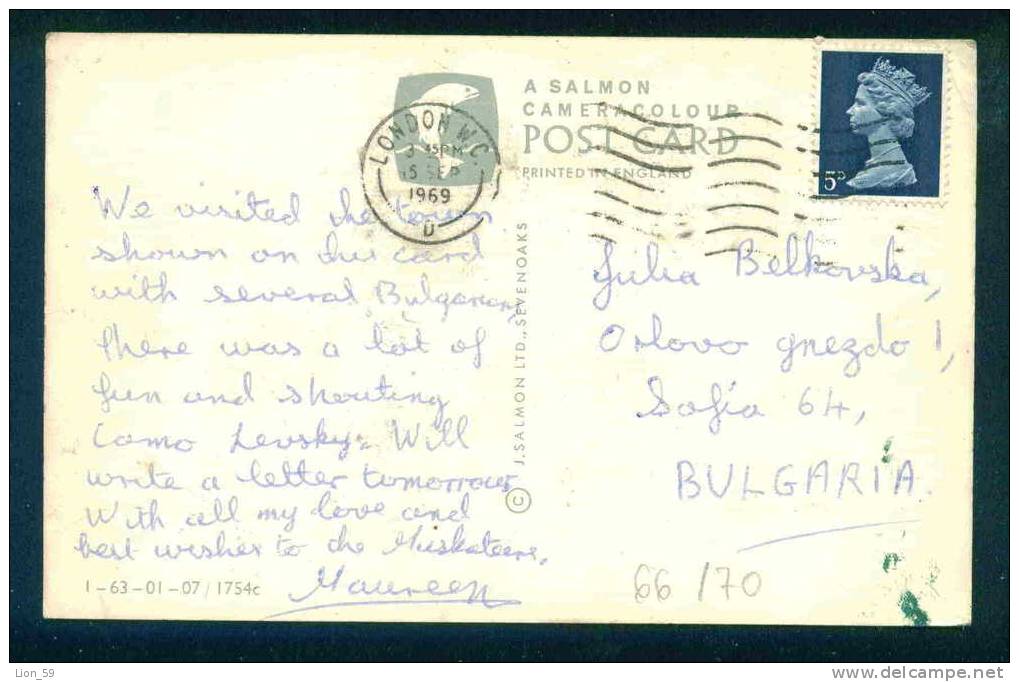 A SALMON
CAMERACOLOUR
POST CARD
PRINTED IN ENGLAND
LONDON W.C
3 45PM
15 SEP
1969
D
5D
We visited the town
shown on the card
with several Bulgarians,
There was a lot of
fun and shouting
Camo Levsky. Will
write a letter tomorrow
With all my love and
best wishes to the Muskateers,
Maureen
1-63-01-07/1754c
© J. SALMON LTD., SEVENOAKS
Julia Belkovska,
Orlovo gnezdo 1,
Sofia 64,
BULGARIA
66/70
Lion_59
delcampe.net